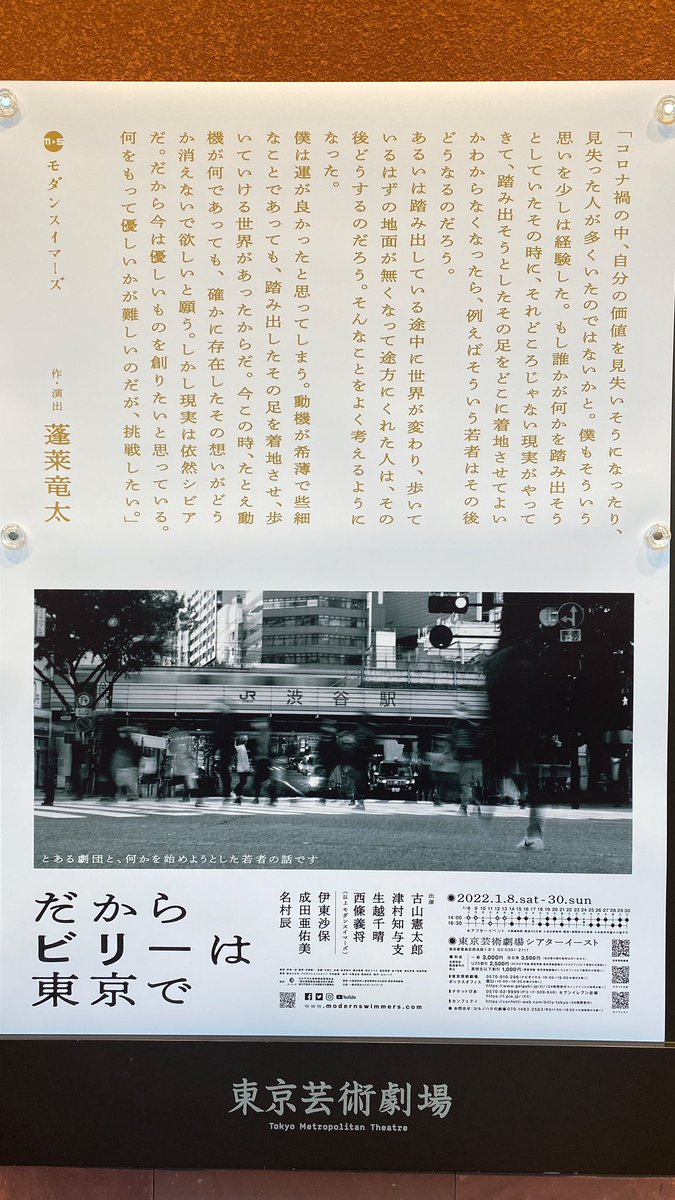 「コロナ禍の中、自分の価値を見失いそうになったり、
見失った人が多くいたのではないかと。僕もそういう
思いを少しは経験した。もし誰かが何かを踏み出そう
としていたその時に、それどころじゃない現実がやって
きて、踏み出そうとしたその足をどこに着地させてよい
かわからなくなったら、例えばそういう若者はその後
どうなるのだろう。
あるいは踏み出している途中に世界が変わり、歩いて
いるはずの地面が無くなって途方にくれた人は、その
後どうするのだろう。そんなことをよく考えるように
なった。
僕は運が良かったと思ってしまう。動機が希薄で些細
なことであっても、踏み出したその足を着地させ、歩
いていける世界があったからだ。今この時、たとえ動
機が何であっても、確かに存在したその想いがどう
か消えないで欲しいと願う。しかし現実は依然シビア
だ。だから今は優しいものを創りたいと思っている。
何をもって優しいかが難しいのだが、挑戦したい。」
M・S モダンスイマーズ
作・演出 蓬莱竜太
JR 渋谷駅
とある劇団と、何かを始めようとした若者の話です
だから
ビリーは
東京で
出演
古山憲太郎
津村知与支
生越千晴
西條義将
(以上モダンスイマーズ)
伊東沙保
成田亜佑美
名村辰
YouTube
www.modernswimmers.com
2022.1.8.sat-30.sun
1/8 9 10 11 12 13 14 15 16 17 18 19 20 21 22 23 24 25 26 27 28 29 30
14:00
18:30
東京芸術劇場シアターイースト
料金
一般 3,000円 当日券 3,500円
U25割引 2,500円
高校生以下割引 1,000円
東京芸術劇場
ボックスオフィス
0570-010-296
チケットぴあ
カンフェティ
東京芸術劇場
Tokyo Metropolitan Theatre